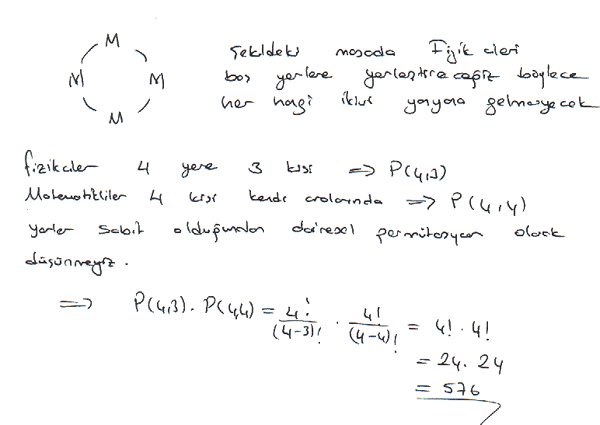 M
M M
M
Şekildeki masada Fizikcileri
boş yerlere yerleştireceğiz böylece
her hangi ikisi yanyana gelmeyecek
fizikciler 4 yere 3 kişi => P(4,3)
Matematikciler 4 kişi kendi aralarında => P(4,4)
yerler sabit olduğundan dairesel permitasyon olarak
düşünmeyiz.
=> P(4,3). P(4,4) = 4!/(4-3)! . 4!/(4-4)! = 4! . 4!
= 24. 24
= 576